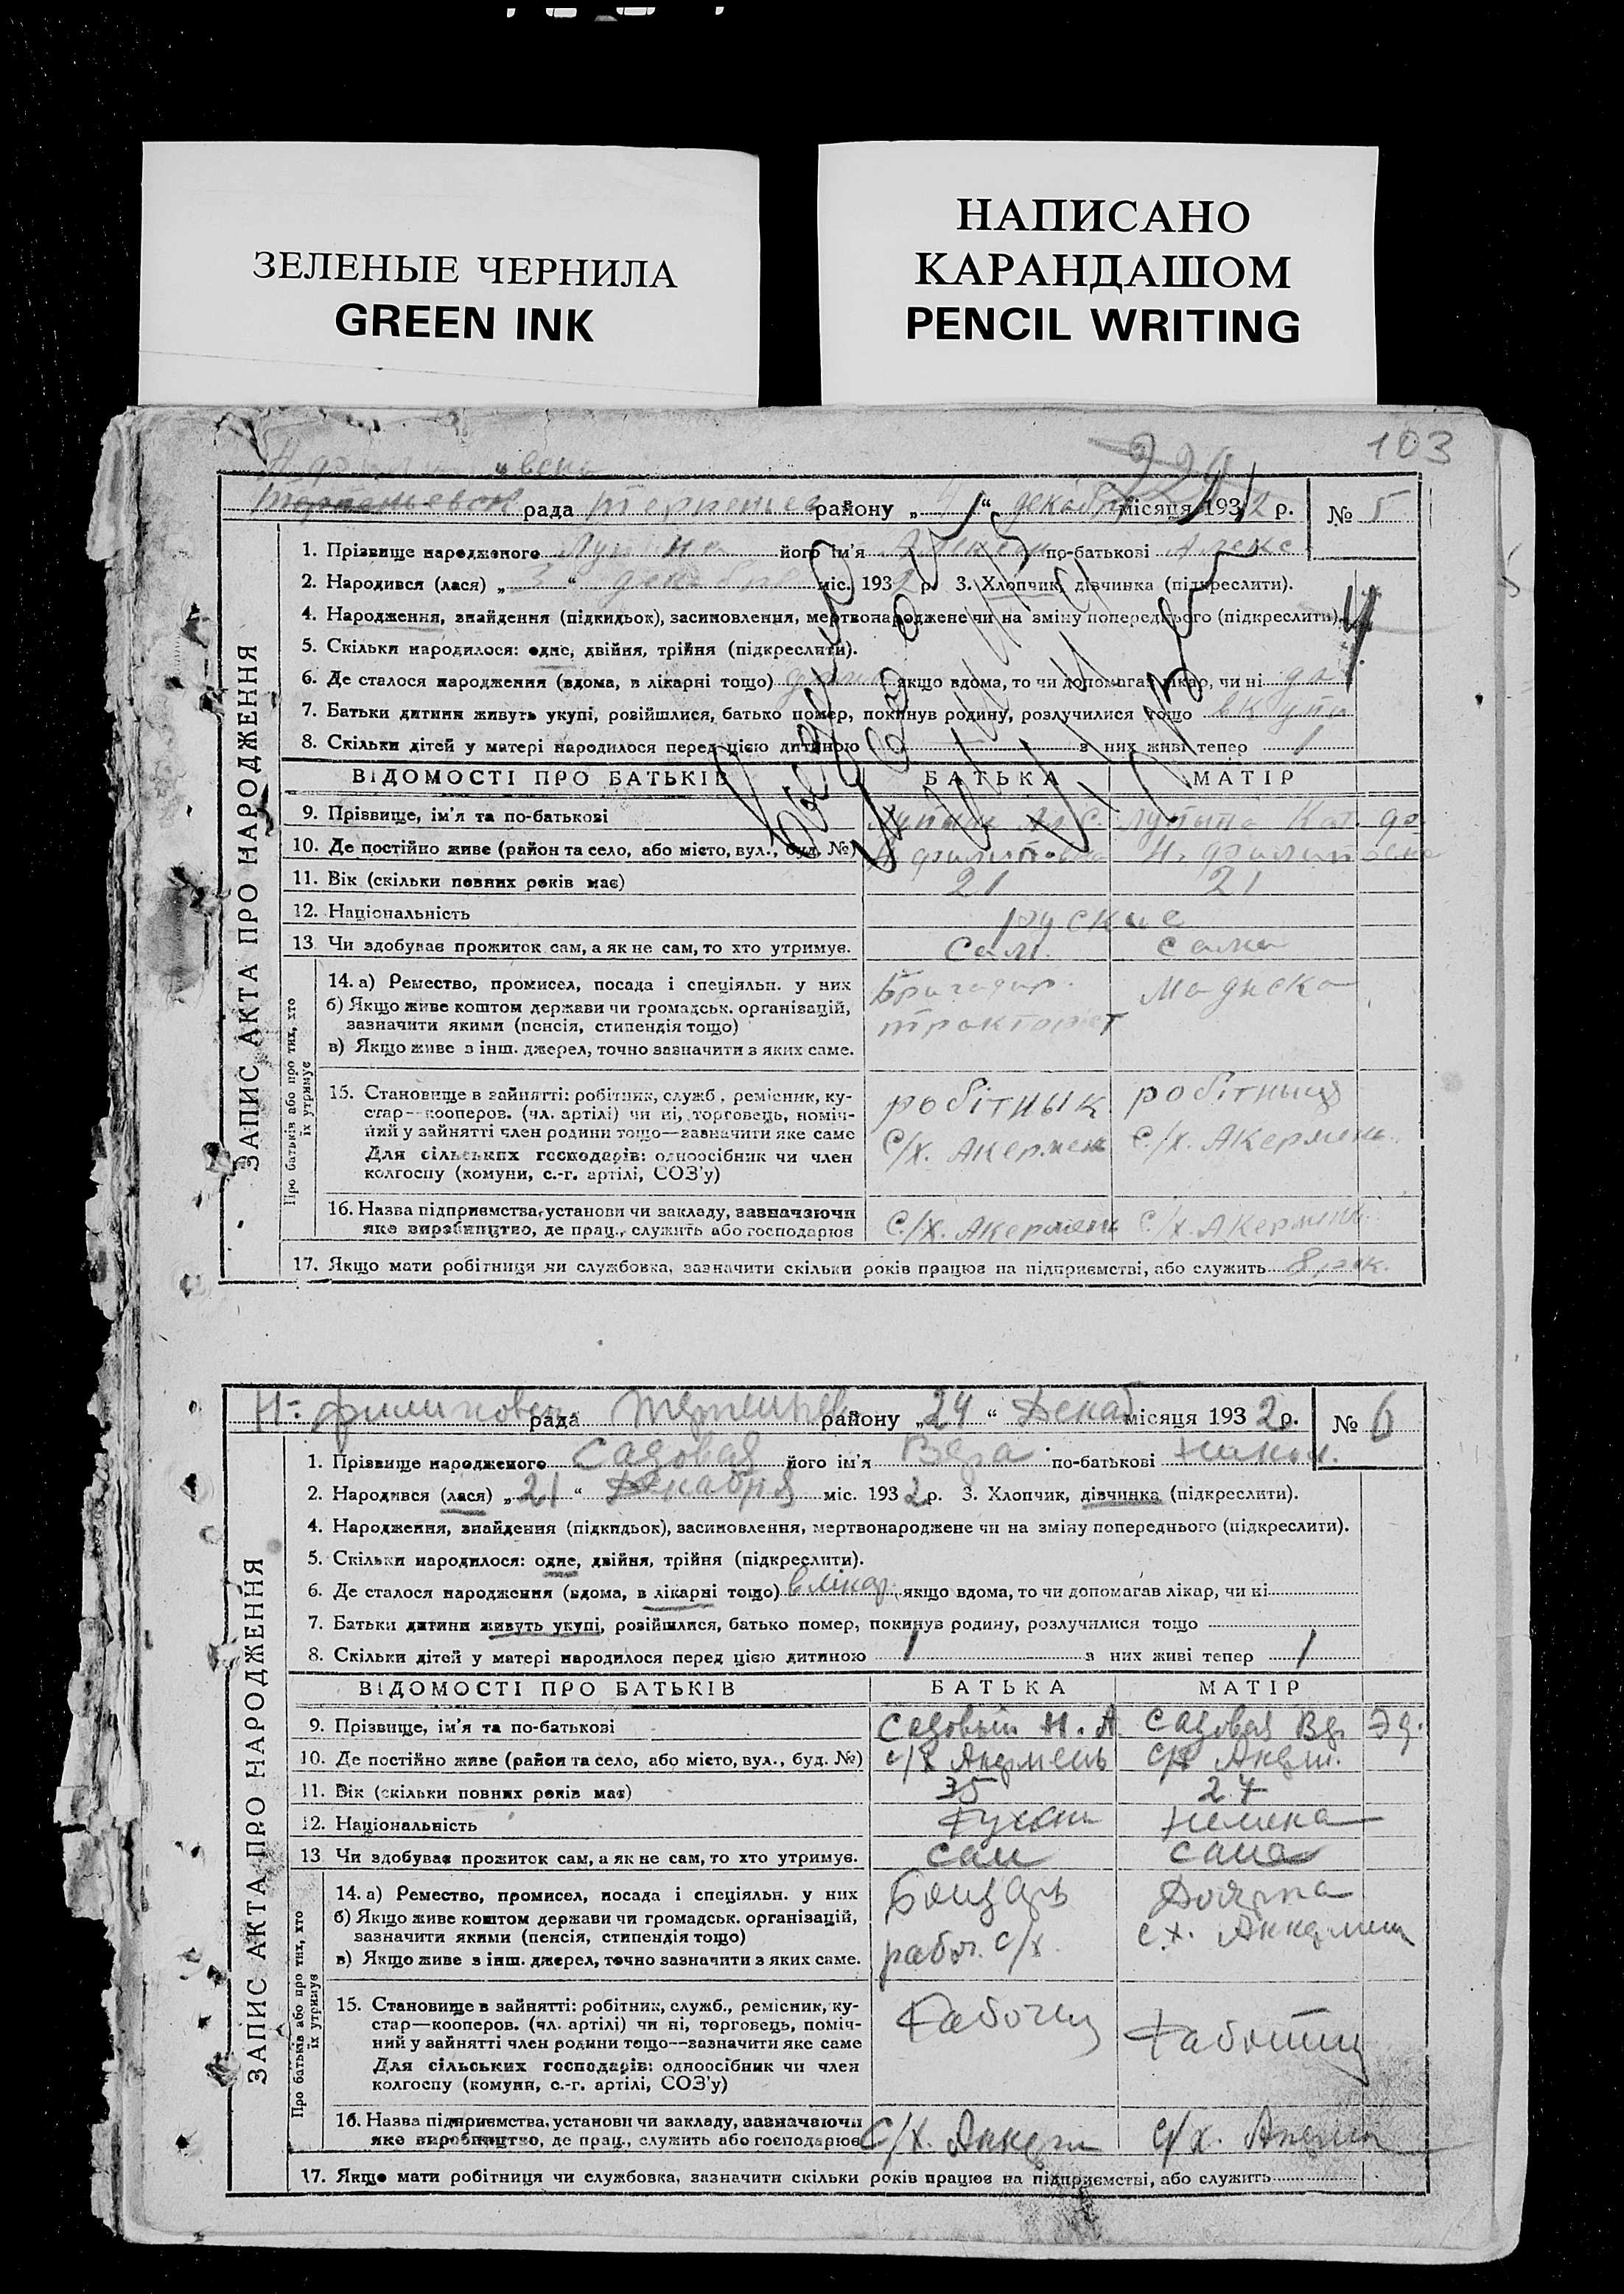 ЗЕЛЕНЫЕ ЧЕРНИЛА
GREEN INK
НАПИСАНО
КАРАНДАШОМ
PENCIL WRITING
103
рада району „ “ декабр місяця 1932 р. № 5
ЗАПИС АКТА ПРО НАРОДЖЕННЯ
1. Прізвище народженого його ім'я по-батькові Алекс
2. Народився (лася) „ 3 “ декабря міс. 1932 р. 3. Хлопчик, дівчинка (підкреслити).
4. Народження, знайдення (підкидьок), засиновлення, мертвонароджене чи на зміну попереднього (підкреслити).
5. Скільки народилося: одне, двійня, трійня (підкреслити).
6. Де сталося народження (вдома, в лікарні тощо) дома якщо вдома, то чи допомагав лікар, чи ні
7. Батьки дитини живуть укупі, розійшлися, батько помер, покинув родину, розлучилися тощо вкупи
8. Скільки дітей у матері народилося перед цією дитиною — з них живі тепер 1
ВІДОМОСТІ ПРО БАТЬКІВ БАТЬКА МАТІР
9. Прізвище, ім'я та по-батькові
10. Де постійно живе (район та село, або місто, вул., буд. №)
11. Вік (скільки повних років має) 21 21
12. Національність руские
13. Чи здобуває прожиток сам, а як не сам, то хто утримує. сам. сама
Про батьків або про тих, хто їх утримує
14. а) Ремество, промисел, посада і спеціяльн. у них
б) Якщо живе коштом держави чи громадськ. організацій,
зазначити якими (пенсія, стипендія тощо)
в) Якщо живе з інш. джерел, точно зазначити з яких саме.
Бригадир.
тракторист
15. Становище в зайнятті: робітник, служб., ремісник, ку-
стар—кооперов. (чл. артілі) чи ні, торговець, поміч-
ний у зайнятті член родини тощо—зазначити яке саме
Для сільських господарів: одноосібник чи член
колгоспу (комуни, с.-г. артілі, СОЗ'у)
робітнык
с/х. Акермен
робітныця
с/х. Акермень
16. Назва підприємства, установи чи закладу, зазначаючи
яке виробництво, де прац., служить або господарює
с/х. Акермень с/х. Акермень
17. Якщо мати робітниця чи службовка, зазначити скільки років працює на підприємстві, або служить 8 рок.
рада району „24“ Декаб місяця 1932 р. № 6
ЗАПИС АКТА ПРО НАРОДЖЕННЯ
1. Прізвище народженого Садовая його ім'я Вера по-батькові Никол.
2. Народився (лася) „21“ Декабря міс. 1932 р. 3. Хлопчик, дівчинка (підкреслити).
4. Народження, знайдення (підкидьок), засиновлення, мертвонароджене чи на зміну попереднього (підкреслити).
5. Скільки народилося: одне, двійня, трійня (підкреслити).
6. Де сталося народження (вдома, в лікарні тощо) в лікар. якщо вдома, то чи допомагав лікар, чи ні
7. Батьки дитини живуть укупі, розійшлися, батько помер, покинув родину, розлучилися тощо
8. Скільки дітей у матері народилося перед цією дитиною 1 з них живі тепер 1
ВІДОМОСТІ ПРО БАТЬКІВ БАТЬКА МАТІР
9. Прізвище, ім'я та по-батькові Садовый Н. А. Садовая Эд.
10. Де постійно живе (район та село, або місто, вул., буд. №) с/х Акермень с/х Акерм.
11. Вік (скільки повних років має) 35 27
12. Національність Руский немка
13. Чи здобуває прожиток сам, а як не сам, то хто утримує. сам сама
Про батьків або про тих, хто їх утримує
14. а) Ремество, промисел, посада і спеціяльн. у них
б) Якщо живе коштом держави чи громадськ. організацій,
зазначити якими (пенсія, стипендія тощо)
в) Якщо живе з інш. джерел, точно зазначити з яких саме.
рабоч. с/х.
Доярка
с.х. Аккермен
15. Становище в зайнятті: робітник, служб., ремісник, ку-
стар—кооперов. (чл. артілі) чи ні, торговець, поміч-
ний у зайнятті член родини тощо—зазначити яке саме
Для сільських господарів: одноосібник чи член
колгоспу (комуни, с.-г. артілі, СОЗ'у)
Рабочий
Работниц
16. Назва підприємства, установи чи закладу, зазначаючи
яке виробництво, де прац., служить або господарює
с/х. Аккерм с/х. Акерм
17. Якщо мати робітниця чи службовка, зазначити скільки років працює на підприємстві, або служить